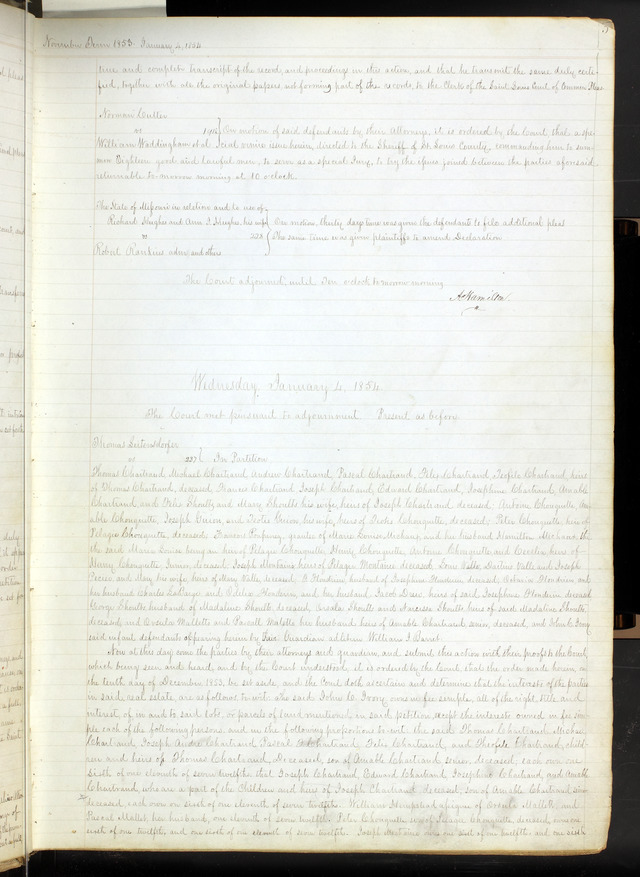 November Term 1853. January 4, 1854
true and complete transcript of the record and proceedings in this action, and that he transmit the same duly certi-
fied, together with all the original papers not forming part of the records to the Clerk of the Saint Louis Court of Common Pleas
Norman Cutter
vs
William Waddingham et al
On motion of said defendants by their Attorneys, it is ordered by the Court, that a spe-
cial venire issue herein, directed to the Sheriff of St Louis County, commanding him to sum-
mon Eighteen good and lawful men, to serve as a special Jury, to try the issue joined between the parties aforesaid
returnable to-morrow morning at 10 o'clock
The State of Missouri in relation and to use of
Richard Hughes and Anne I. Hughes, his wife
On motion, thirty days time was given the defendants to file additional pleas
vs
The same time was given plaintiffs to amend Declaration
Robert Rankins admr and others
The Court adjourned until Ten o'clock tomorrow morning.
A. Hamilton.
Wednesday January 4, 1854
The Court met pursuant to adjournment. Present as before
Thomas Leitensdorfer
vs 237 In Partition
Thomas Chartrand, Michael Chartrand, Andrew Chartrand, Pascal Chartrand, Felix Chartrand, Teofile Chartrand, heirs
of Thomas Chartrand, deceased, Francis Chartrand, Joseph Chartrand, Edward Chartrand, Josephine Chartrand, Amable
Chartrand and Felix Shoults and Mary Shoults his wife, heirs of Joseph Chartrand, deceased, Antoine Chouquette, Am-
able Chouquette, Joseph and his wife, heirs of Chouquette, deceased; Peter Chouquette, heir of
Pelagie Chouquette, deceased; of Marie Louise Michaud, and her husband Hamilton Michaud
the said Marie Louise being an heir of Pelagie Chouquette, Henry Chouquette, Antoine Chouquette and Cecilia heirs of
Henry Chouquette Junior, deceased, Joseph Montaine heir of Pelagie Montaine deceased, Louis Valle, Valle and Joseph
and Mary his wife, heirs of Mary Valle, deceased, husband of Josephine deceased,
her husband Charles and and her husband Jacob heirs of said Josephine deceased
George Shoults husband of Madaline Shoults, deceased, Shoults and Narcisse Shoults heirs of said Madaline Shoults,
deceased, and Ursula Mallette and Pascall Malette her husband, heirs of Amable Chartrand senior, deceased, and John C. Ivory
said infant defendants appearing herein by their Guardian ad litem William I Barret
Now at this day come the parties by their attorneys and guardian, and submit this action with their proofs to the Court,
which being seen and heard, and by the Court understood, it is ordered by the Court, that the order made herein, on
the tenth day of December 1853, be set aside, and the Court doth ascertain and determine that the interests of the parties
in said real estate, are as follows to wit: The said John C. Ivory owns in fee simple, all of the right, title and
interest of, in and to said lots, or parcels of land mentioned in said petition, except the interests owned in fee sim-
ple each of the following persons, and in the following proportions to wit: the said Thomas Chartrand, Michael
Chartrand, Joseph Andre Chartrand, Pascal Chartrand, Felix Chartrand, and Theofile Chartrand, child-
ren and heirs of Thomas Chartrand, Deceased, son of Amable Chartrand senior, deceased, each own one
sixth of one eleventh of seven twelfths that Joseph Chartrand, Edward Chartrand, Josephine Chartrand, and Amable
Chartrand, who are a part of the Children and heirs of Joseph Chartrand, deceased, son of Amable Chartrand senior
deceased, each own one sixth of one eleventh of seven twelfths. William Hempstead assignee of Ursula Mallett, and
Pascal Mallet, her husband, one eleventh of seven twelfths. Peter Chouquette heir of Pelagie Chouquette, deceased, owns one
sixth of one twelfth, and one sixth of one eleventh of seven twelfths. Joseph Montaine owns one sixth of one twelfth, and one sixth